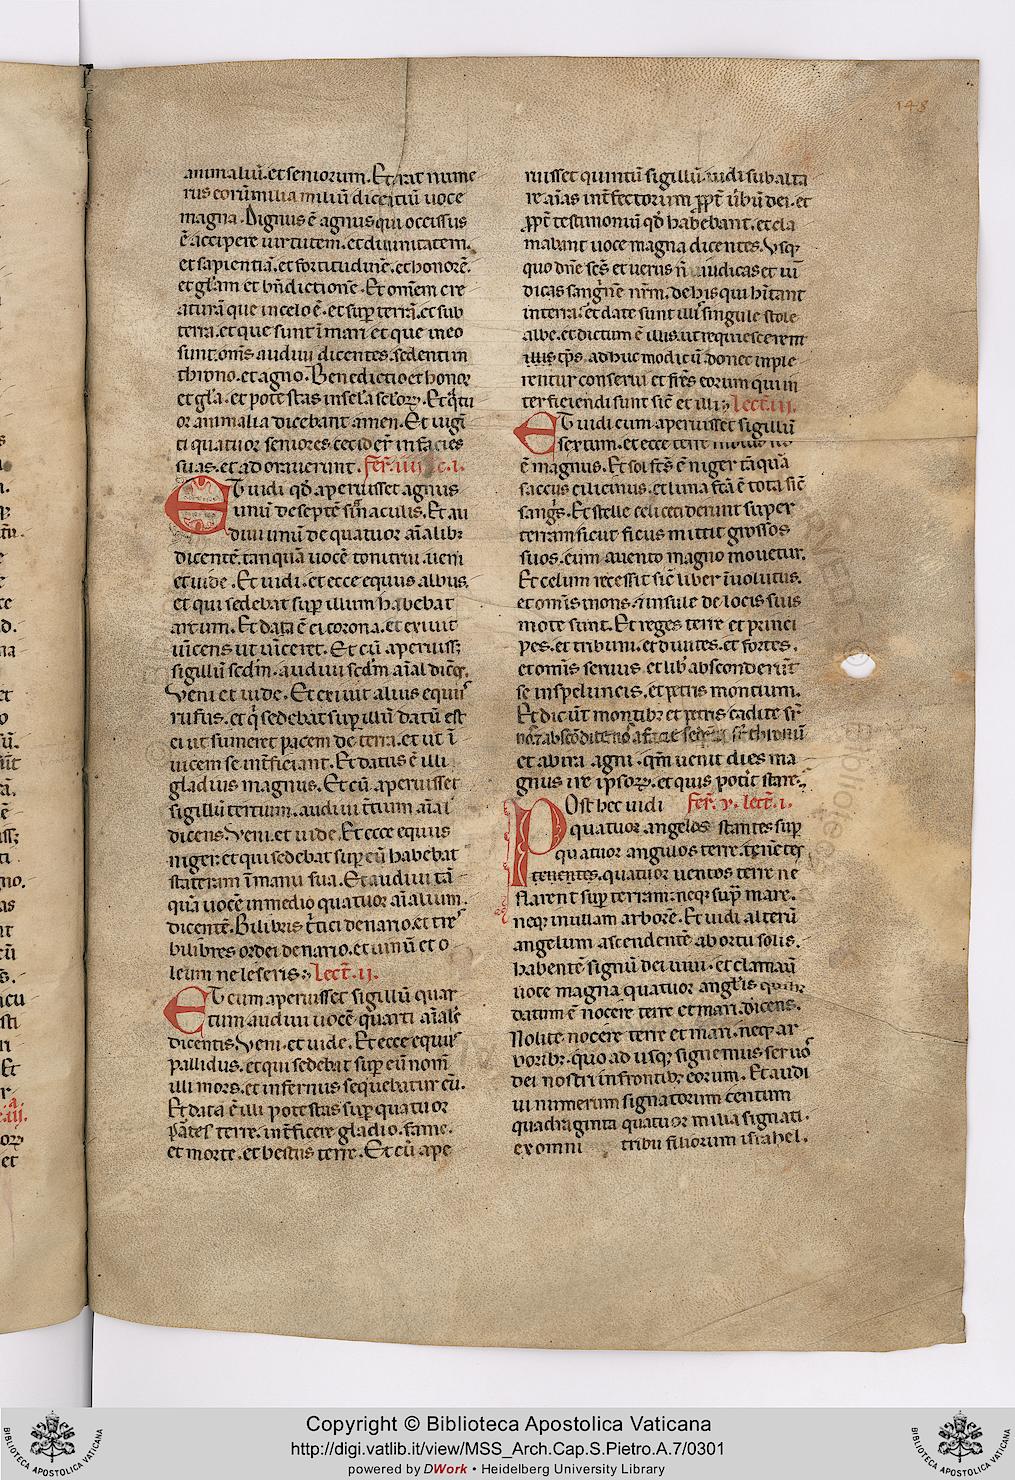 148
animaliū. et seniorum. Et erat nume
rus eorū milia miliū dicētiū uoce
magna. Dignus ē agnus qui occissus
ē accipere uirtutem. et diuinitatem.
et sapientiā. et fortitudinē. et honorē.
et gl̄am et bn̄dictionē. Et om̄em cre
aturā que in celo ē. et sup̄ terrā. et sub
terra. et que sunt ī mari et que in eo
sunt. om̄s audiui dicentes. sedenti in
throno. et agno. Benedictio et honor
et gl̄a. et potestas in sc̄la sc̄lorꝝ. Et qͣtu
or animalia dicebant amen. Et uigī
ti quatuor seniores cecider̄ in facies
suas. et adorauerunt. fer̄. iiii. lc̄. i.
ET uidi qd̄ aperuisset agnus
unū de septē signaculis. Et au
diui unū de quatuor aīalibꝫ
dicentē. tanquā uocē tonitrui. ueni
et uide. Et uidi. et ecce equus albus.
et qui sedebat sup̄ illum habebat
arcum. Et data ē ei corona. et exiuit
uīcens ut uīceret. Et cū aperuissꝫ
sigillū scdm̄. audiui scdm̄ aīal dicēs.
Veni et uide. Et exiuit alius equus
rufus. et qͥ sedebat sup̄ illū datū est
ei ut sumeret pacem de terra. et ut ī
uicem se int̄ficiant. Et datus ē illi
gladius magnus. Et cū aperuisset
sigillū tertium. audiui t̄tium aīal
dicens. Veni. et uide. Et ecce equus
niger. et qui sedebat sup̄ eū habebat
stateram ī manu sua. Et audiui tā
quā uocē in medio quatuor aīalium.
dicentē. Bilibris t̄tici denario. et tres
bilibres ordei denario. et uinū et o
leum ne leseris. Lect̄. ii.
ET cum aperuisset sigillū quar
tum audiui uocē quarti aīalis
dicentis. Veni. et uide. Et ecce equus
pallidus. et qui sedebat sup̄ eū nom̄
illi mors. et infernus sequebatur eū.
Et data ē illi potestas sup̄ quatuor
partes terre. int̄ficere gladio. fame.
et morte. et bestiis terre. Et cū ape
ruisset quintū sigillū. uidi sub alta
re aīas int̄fectorum ꝓpt̄ ūbū dei. et
ꝓpt̄ testimoniū qd̄ habebant. et cla
mabant uoce magna dicentes. Vsqꝫ
quo dn̄e sc̄s et uerus n̄ iudicas et uī
dicas sanguinē nr̄m. de his qui hītant
in terra. et date sunt illis singule stole
albe. et dictum ē illis. ut requiescerent
illis tp̄s. adhuc modicū. donec imple
rentur conserui et fr̄es eorum qui in
terficiendi sunt sic̄ et illi. Lect̄. iii.
ET uidi cum aperuisset sigillū
sextum. et ecce terre motus
ē magnus. Et sol fc̄s ē niger tāquā
saccus cilicinus. et luna fc̄a ē tota sic̄
sangͥs. Et stelle celi ceciderunt super
terram sicut ficus mittit grossos
suos. cum a uento magno mouetur.
Et celum recessit sic̄ liber īuolutus.
et om̄is mons. ⁊ insule de locis suis
mote sunt. Et reges terre et princi
pes. et tribuni. et diuites. et fortes.
et om̄is seruus. et lib̄ absconderūt
se in speluncis. et petris montium.
Et dicūt montibꝫ et petris cadite sr̄
nos. ⁊ abscōdite nos a facie sedētis sr̄ thronū
et ab ira agni. qm̄ uenit dies ma
gnus ire ipsorꝝ. et quis poterit stare.
POst hec uidi fer̄. v. lect̄. i.
quatuor angelos stantes sup̄
quatuor angulos terre. tenētes
tenentes. quatuor uentos terre ne
flarent sup̄ terram. neqꝫ sup̄ mare.
neqꝫ in ullam arborē. Et uidi alterū
angelum ascendentē ab ortu solis.
habentē signū dei uiui. et clamauit
uoce magna quatuor angelis quibꝫ
datum ē nocere terre et mari. dicens.
Nolite nocere terre et mari. neqꝫ ar
boribꝫ. quo ad usqꝫ signemus seruos
dei nostri in frontibꝫ eorum. Et audi
ui numerum signatorum centum
quadraginta quatuor milia signati.
ex omni tribu filiorum israhel.
Copyright © Biblioteca Apostolica Vaticana
http://digi.vatlib.it/view/MSS_Arch.Cap.S.Pietro.A.7/0301
powered by DWork • Heidelberg University Library
BIBLIOTECA APOSTOLICA VATICANA
BIBLIOTECA APOSTOLICA VATICANA